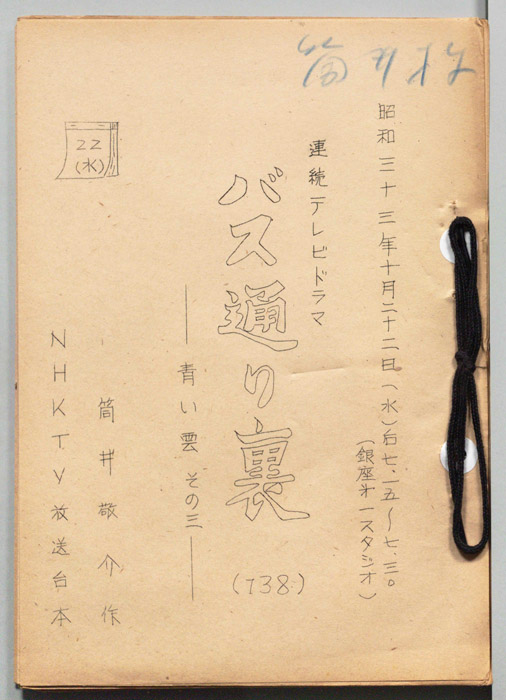 筒井様
昭和三十三年十月二十二日(水)后七.一五〜七.三〇
(銀座才一スタジオ)
連続テレビドラマ
バス通り裏
(138)
——青い雲 その三——
22
(水)
筒井敬介作
NHKTV放送台本